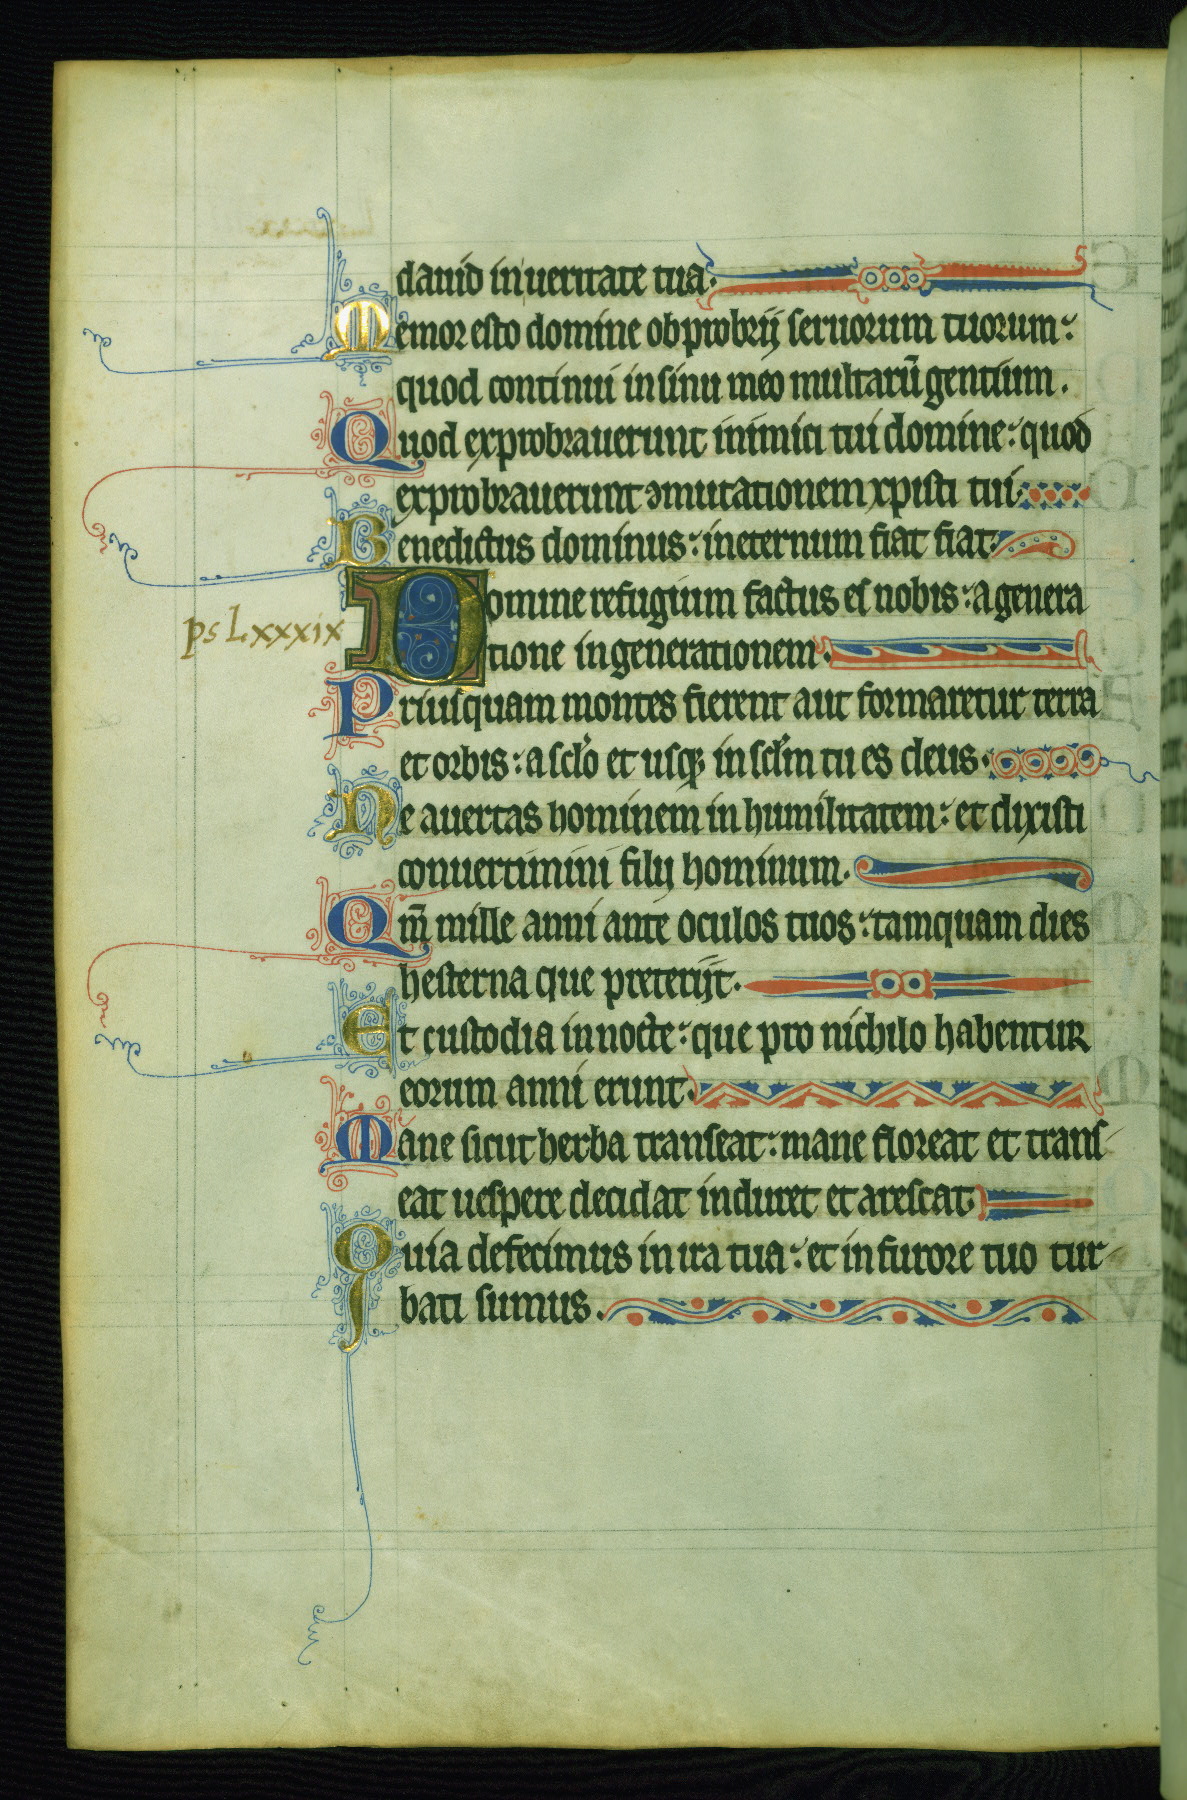 dauid in ueritate tua.
Memor esto domine obprobrij seruorum tuorum:
quod continui in sinu meo multarū gentium.
Quod exprobrauerunt inimici tui domine: quod
exprobrauerunt ↄmutationem xpisti tui.
Benedictus dominus: in eternum fiat fiat.
Domine refugium factus es nobis: a genera
ps Lxxxix
tione in generationem.
Priusquam montes fierent aut formaretur terra
et orbis: a sclo et usq; in sclm tu es deus.
Ne auertas hominem in humilitatem: et dixisti
conuertimini filij hominum.
Qm̄ mille anni ante oculos tuos: tamquam dies
hesterna que preterijt.
Et custodia in nocte: que pro nichilo habentur
eorum anni erunt.
Mane sicut herba transeat: mane floreat et trans
eat uespere decidat induret et arescat.
Quia defecimus in ira tua: et in furore tuo tur
bati sumus.